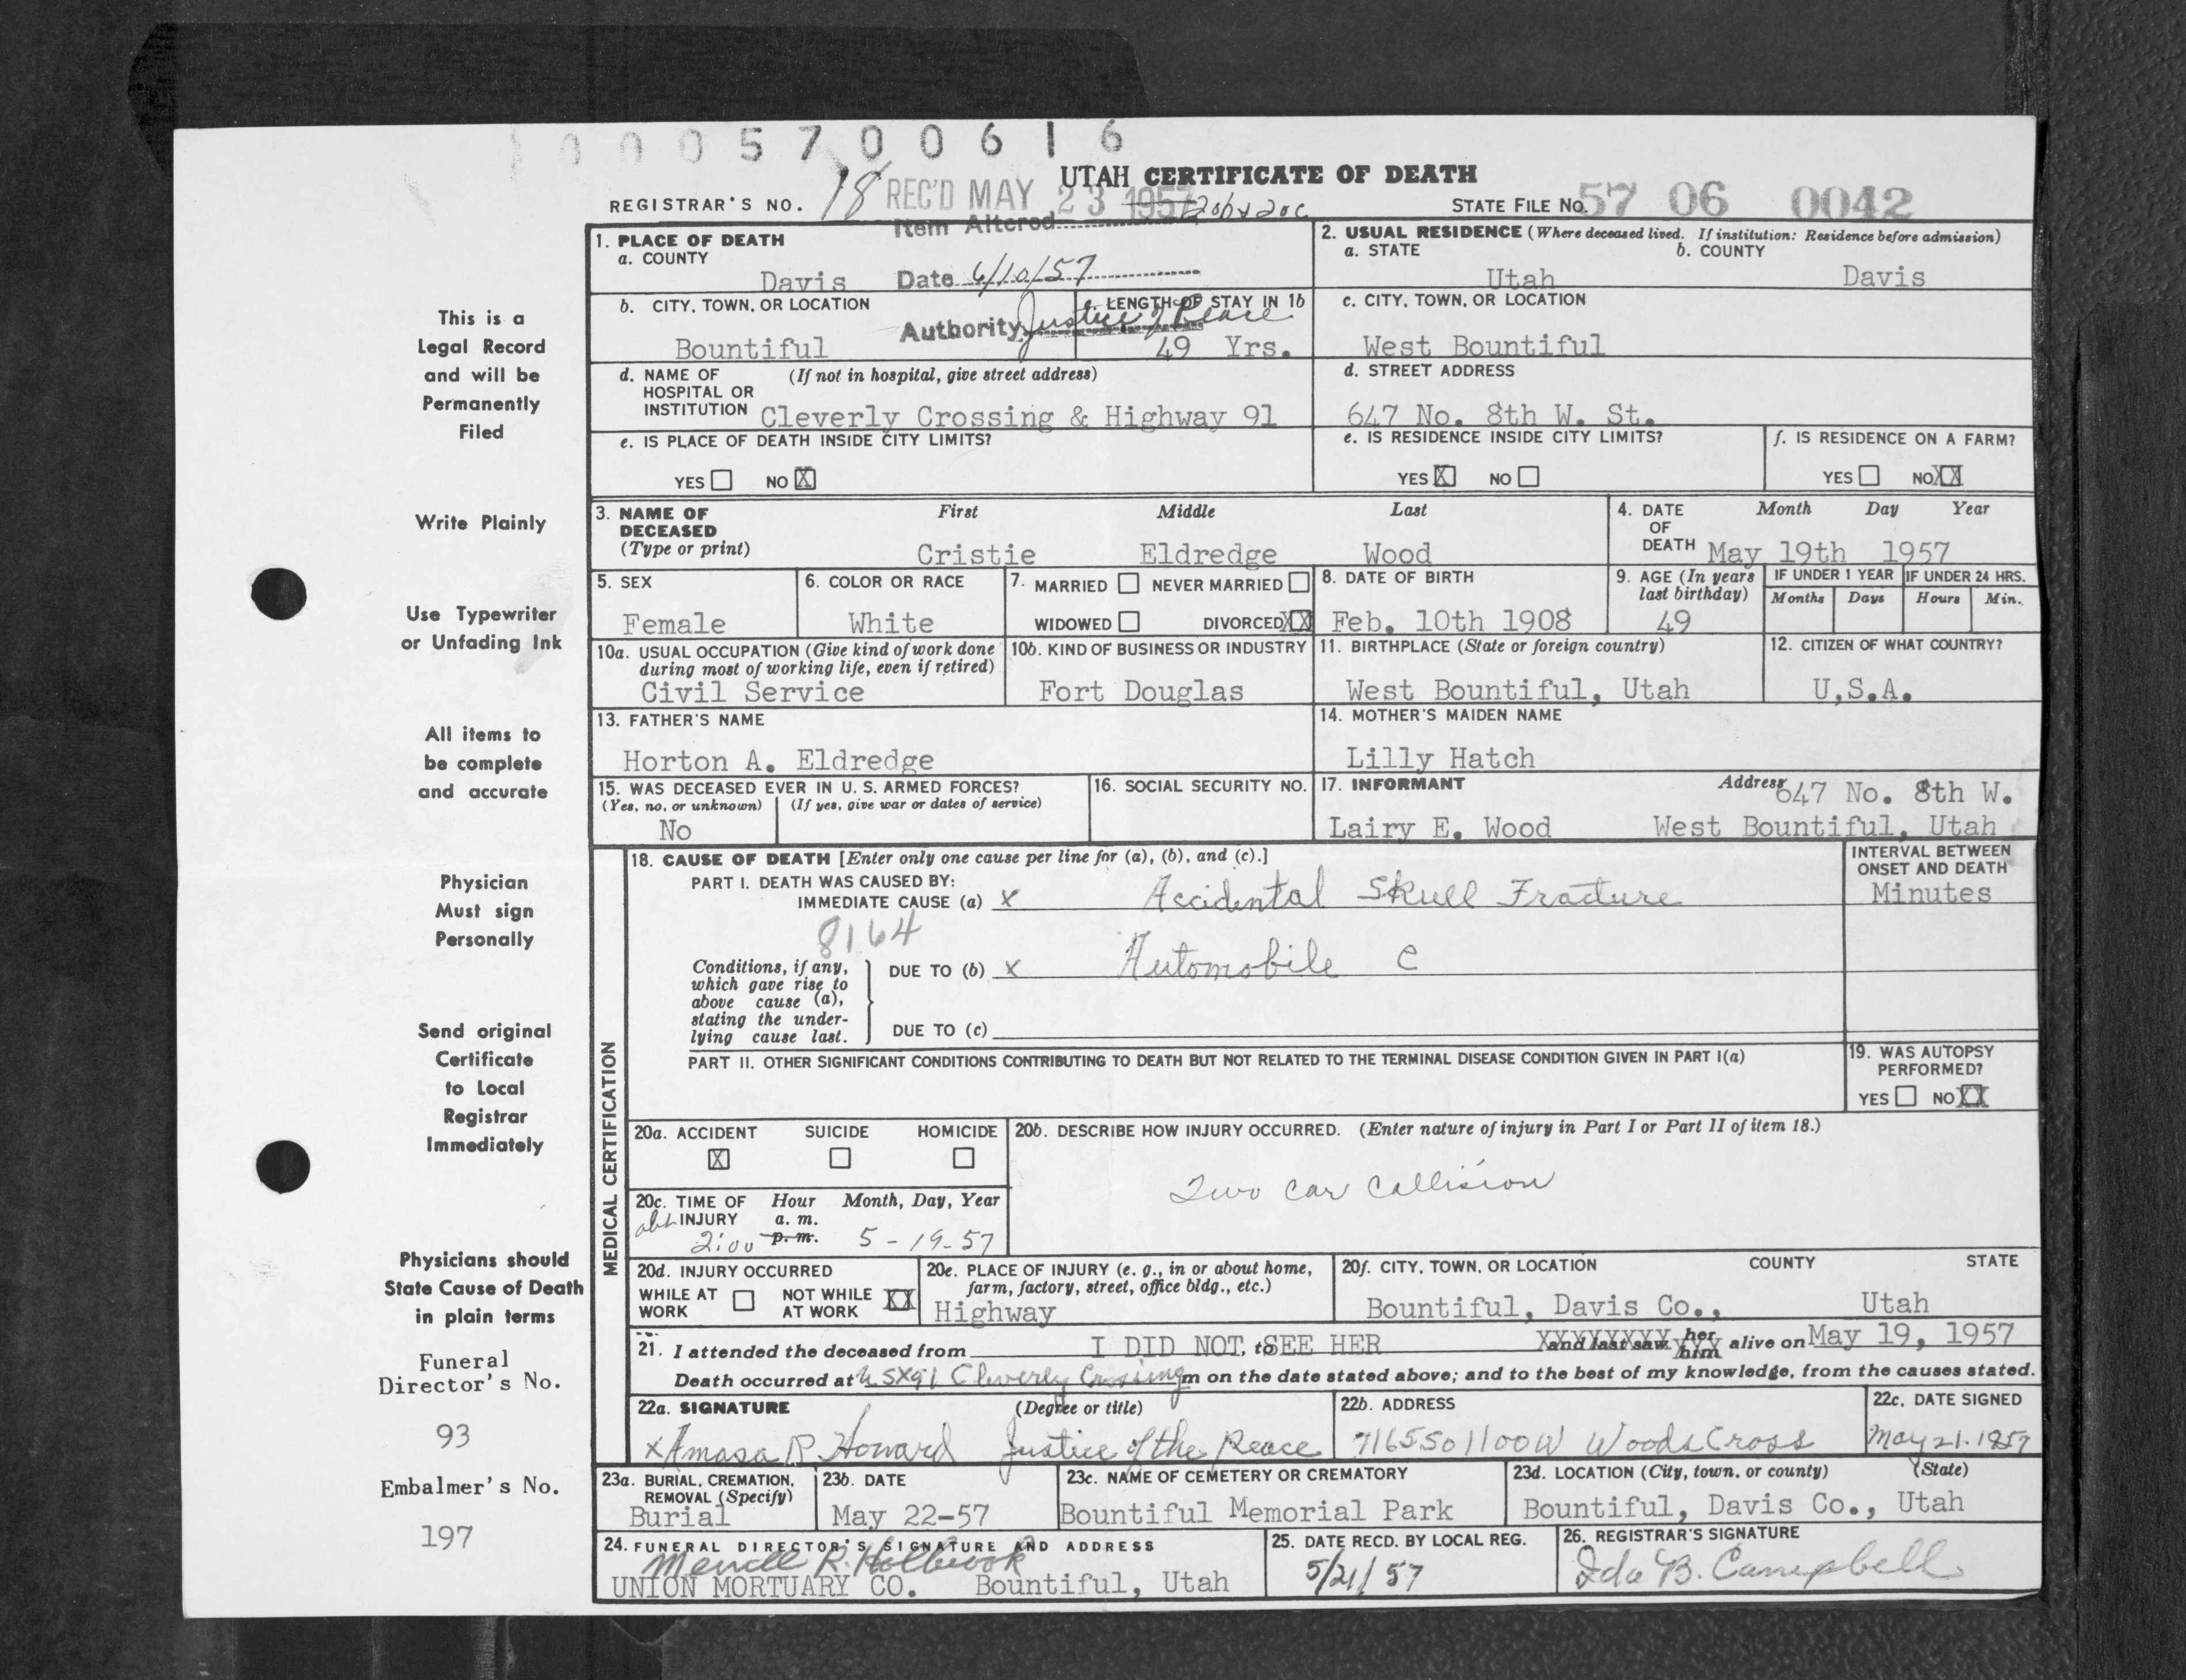 0005700616
UTAH CERTIFICATE OF DEATH
REGISTRAR'S NO. 18 REC'D MAY 23 1957 20b & 20c STATE FILE NO. 57 06 0042
Item Altered
1. PLACE OF DEATH
a. COUNTY
Davis Date 6/10/57
2. USUAL RESIDENCE (Where deceased lived. If institution: Residence before admission)
a. STATE b. COUNTY
Utah Davis
b. CITY, TOWN, OR LOCATION c. LENGTH OF STAY IN 1b
Authority Justice of Peace
Bountiful 49 Yrs.
c. CITY, TOWN, OR LOCATION
West Bountiful
d. NAME OF (If not in hospital, give street address)
HOSPITAL OR
INSTITUTION Cleverly Crossing & Highway 91
d. STREET ADDRESS
647 No. 8th W. St.
e. IS PLACE OF DEATH INSIDE CITY LIMITS?
YES NO X
e. IS RESIDENCE INSIDE CITY LIMITS?
YES X NO
f. IS RESIDENCE ON A FARM?
YES NO XX
3. NAME OF First Middle Last
DECEASED
(Type or print) Cristie Eldredge Wood
4. DATE Month Day Year
OF
DEATH May 19th 1957
5. SEX
Female
6. COLOR OR RACE
White
7. MARRIED NEVER MARRIED
WIDOWED DIVORCED XX
8. DATE OF BIRTH
Feb. 10th 1908
9. AGE (In years
last birthday)
49
IF UNDER 1 YEAR IF UNDER 24 HRS.
Months Days Hours Min.
10a. USUAL OCCUPATION (Give kind of work done
during most of working life, even if retired)
Civil Service
10b. KIND OF BUSINESS OR INDUSTRY
Fort Douglas
11. BIRTHPLACE (State or foreign country)
West Bountiful, Utah
12. CITIZEN OF WHAT COUNTRY?
U,S.A.
13. FATHER'S NAME
Horton A. Eldredge
14. MOTHER'S MAIDEN NAME
Lilly Hatch
15. WAS DECEASED EVER IN U. S. ARMED FORCES?
(Yes, no, or unknown) (If yes, give war or dates of service)
No
16. SOCIAL SECURITY NO.
17. INFORMANT Address 647 No. 8th W.
Lairy E. Wood West Bountiful, Utah
MEDICAL CERTIFICATION
18. CAUSE OF DEATH [Enter only one cause per line for (a), (b), and (c).]
PART I. DEATH WAS CAUSED BY:
IMMEDIATE CAUSE (a) x Accidental Skull Fracture
INTERVAL BETWEEN
ONSET AND DEATH
Minutes
8164
Conditions, if any,
which gave rise to
above cause (a),
stating the under-
lying cause last.
DUE TO (b) x Automobile C
DUE TO (c)
PART II. OTHER SIGNIFICANT CONDITIONS CONTRIBUTING TO DEATH BUT NOT RELATED TO THE TERMINAL DISEASE CONDITION GIVEN IN PART I(a)
19. WAS AUTOPSY
PERFORMED?
YES NO XX
20a. ACCIDENT SUICIDE HOMICIDE
X
20b. DESCRIBE HOW INJURY OCCURRED. (Enter nature of injury in Part I or Part II of item 18.)
Two car Collision
20c. TIME OF Hour Month, Day, Year
abt INJURY a. m.
2:00 p. m. 5-19-57
20d. INJURY OCCURRED
WHILE AT NOT WHILE XX
WORK AT WORK
20e. PLACE OF INJURY (e. g., in or about home,
farm, factory, street, office bldg., etc.)
Highway
20f. CITY, TOWN, OR LOCATION COUNTY STATE
Bountiful, Davis Co., Utah
21. I attended the deceased from I DID NOT, to SEE HER XXXXXXXX and last saw her him XXX alive on May 19, 1957
Death occurred at U S X 91 Cleverly Crossing m on the date stated above; and to the best of my knowledge, from the causes stated.
22a. SIGNATURE (Degree or title)
x Amasa R. Howard Justice of the Peace
22b. ADDRESS
716 S So 1100 W Woods Cross
22c. DATE SIGNED
May 21. 1957
23a. BURIAL, CREMATION,
REMOVAL (Specify)
Burial
23b. DATE
May 22-57
23c. NAME OF CEMETERY OR CREMATORY
Bountiful Memorial Park
23d. LOCATION (City, town, or county) (State)
Bountiful, Davis Co., Utah
24. FUNERAL DIRECTOR'S SIGNATURE AND ADDRESS
Merrill R. Holbrook
UNION MORTUARY CO. Bountiful, Utah
25. DATE RECD. BY LOCAL REG.
5/21/57
26. REGISTRAR'S SIGNATURE
Ida B. Campbell
This is a
Legal Record
and will be
Permanently
Filed
Write Plainly
Use Typewriter
or Unfading Ink
All items to
be complete
and accurate
Physician
Must sign
Personally
Send original
Certificate
to Local
Registrar
Immediately
Physicians should
State Cause of Death
in plain terms
Funeral
Director's No.
93
Embalmer's No.
197